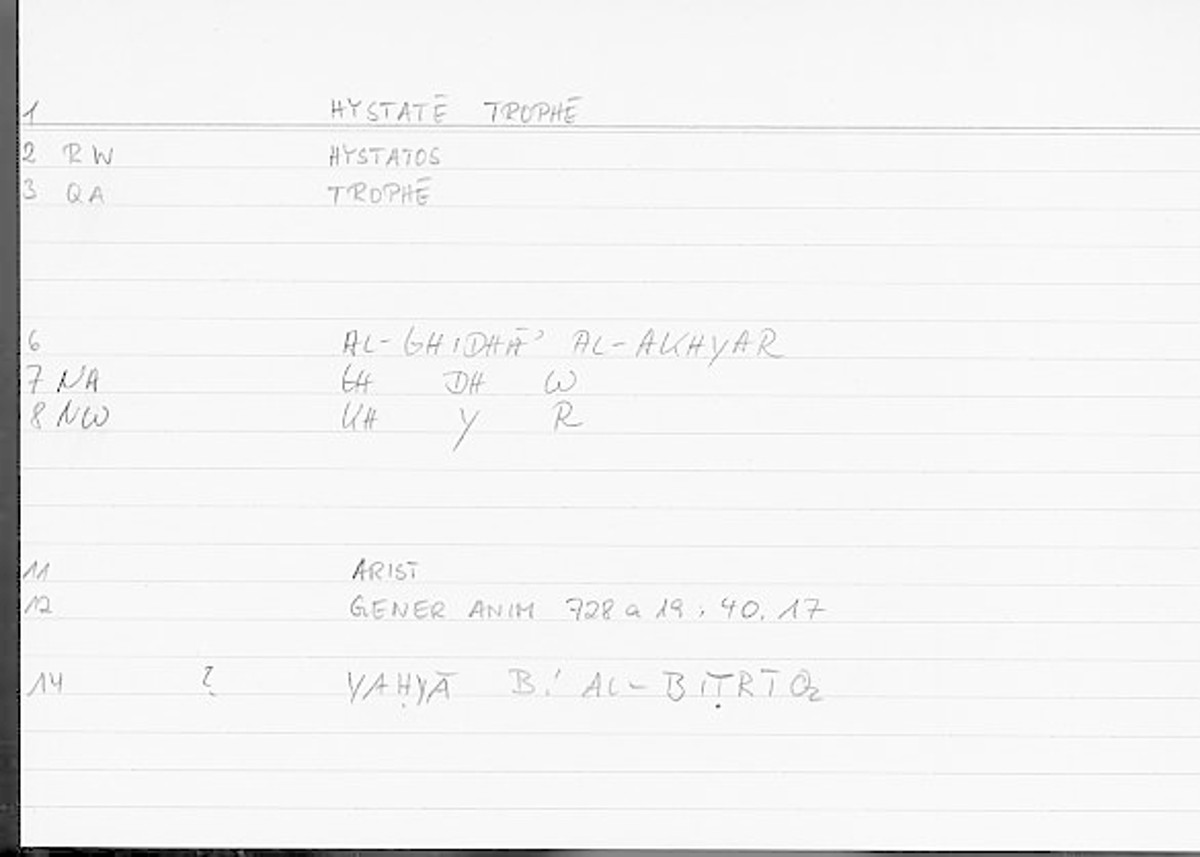 1 HYSTATĒ TROPHĒ
2 RW HYSTATOS
3 QA TROPHĒ
6 AL-GHIDHĀ' AL-AKHYAR
7 NA GH DH W
8 NW KH Y R
11 ARIST
12 GENER ANIM 728 a 19 ; 40, 17
14 ? YAḤYĀ B.' AL-BIṬRĪQ